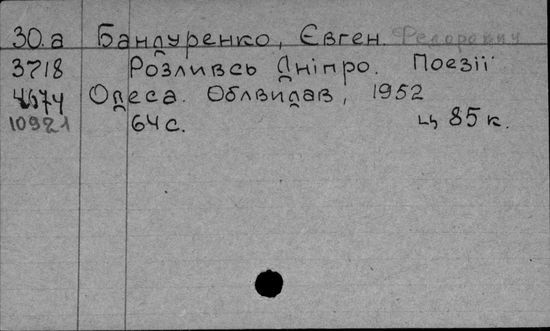 30.а Бандуренко, Євген Федорович
3718 Розливсь Дніпро. Поезії
4674 Одеса. Облвидав, 1952
10921 64 с. ц 85 к.